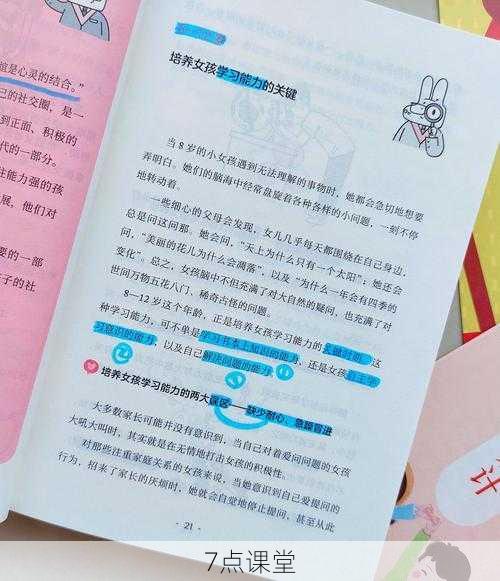 谊是心灵的结合。”
己的社交圈，是一
到正面、积极的
代的一部分。
往能力强的孩
展，他们对
要的一部
子的社
培养女孩学习能力的关键
当 8 岁的小女孩遇到无法理解的事物时，她都会急切地想要
弄明白。她们的脑海中经常盘旋着各种各样的小问题，一刻不停
地转动着。
一些细心的父母会发现，女儿几乎每天都围绕在自己身边，
总是问这问那。她会问，“天上为什么只有一个太阳”；她还会
问，“美丽的花儿为什么会凋落”，以及“为什么一年会有四季的
变化”。总之，女孩脑中不但充满了对大自然的疑问，也充满了对
世间万物五花八门、稀奇古怪的问题。
8—12 岁这个年龄，正是培养女孩学习能力的关键时期。这
种学习能力，可不单是学习书本上知识的能力，还是女孩自主学
习意识的能力，以及自己解决问题的能力。
培养女孩学习能力的两大误区——缺少耐心、急躁冒进
大多数家长可能并没有意识到，当自己对着爱问问题的女孩
大吼大叫时，其实就是在无情地打击女孩的积极性。
对那些注重家庭关系的女孩来说，当她意识到自己爱提问的
行为，招来了家长的厌烦时，她就会自觉地停止提问，甚至从此
· 21 ·
计
7点课堂